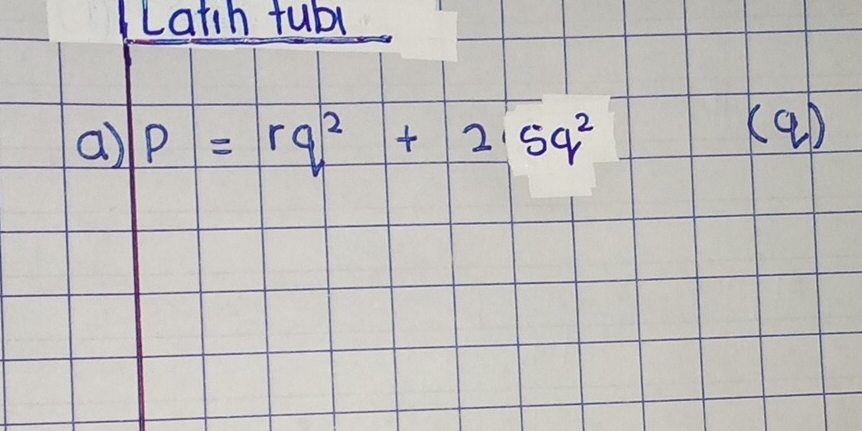 Latih tubi
a) P = rq² + 2sq² (q)